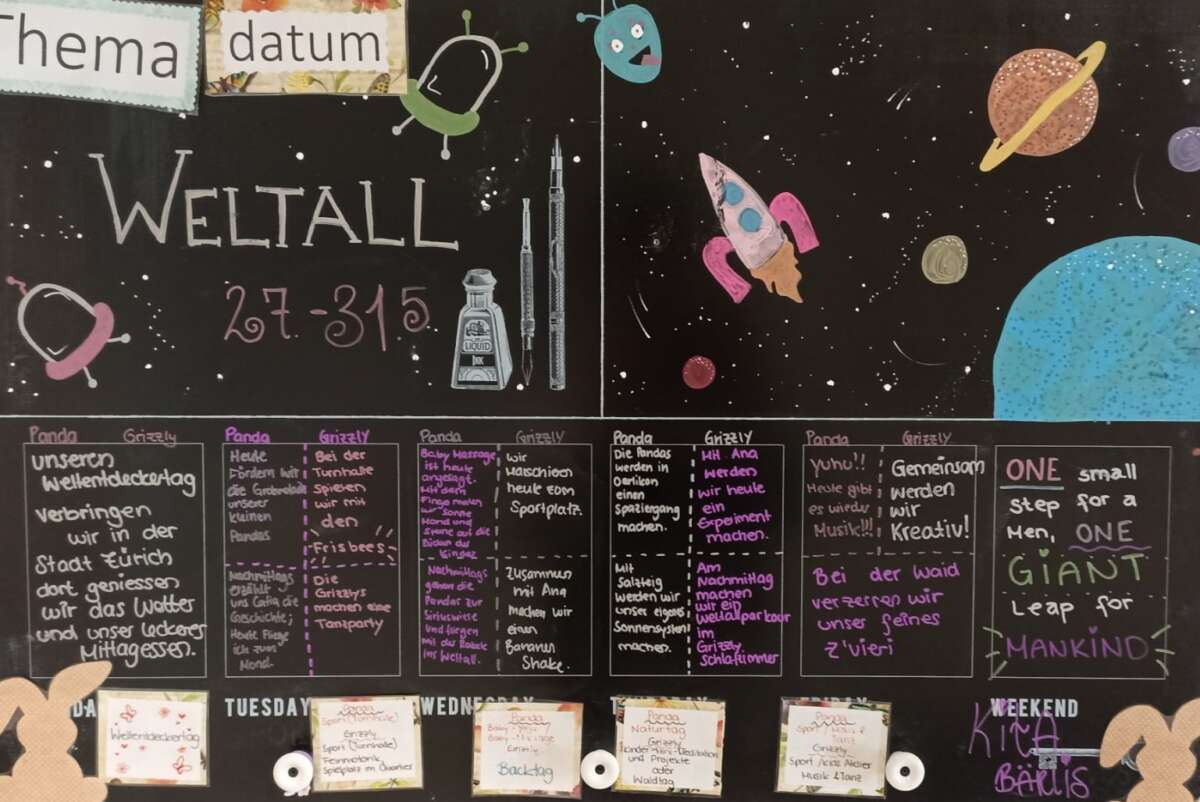 Thema
datum
WELTALL
27.-31.5
LIQUID
INK
Panda Grizzly
unseren
Weltentdeckertag
verbringen
wir in der
Stadt Zürich
dort geniessen
wir das Wetter
und unser leckeres
Mittagessen.
Panda
Heute
Fördern wir
die
unserer
kleinen
Pandas
Grizzly
Bei der
Turnhalle
spielen
wir mit
den
Frisbees
Nachmittags
erzählt
uns Catia die
Geschichte;
Heute Fliege
ich zum
Mond.
Die
Grizzlys
machen eine
Tanzparty
Panda
Baby Massage
ist heute
angesagt.
Mit dem
Finger malen
wir Sonne
Mond und
Sterne auf die
Rücken der
Kinder
Grizzly
wir
Marschieren
heute zum
Sportplatz.
Nachmittags
gehen die
Pandas zur
Siriuswiese
und fliegen
mit der Rakete
ins Weltall.
Zusammen
mit Ana
machen wir
einen
Bananen
Shake.
Panda
Die Pandas
werden in
Oerlikon
einen
Spaziergang
machen.
Grizzly
Mit Ana
werden
wir heute
ein
Experiment
machen.
Mit
Salzteig
werden wir
unser eigenes
Sonnensystem
machen.
Am
Nachmittag
machen
wir ein
Weltallparkour
im
Grizzly
Schlafzimmer
Panda
Yuhu!!
Heute gibt
es wieder
Musik!!!
Grizzly
Gemeinsam
werden
wir
Kreativ!
Bei der Waid
verzerren wir
unser feines
Z'vieri
ONE small
Step for a
Men, ONE
GIANT
Leap for
MANKIND
DA TUESDAY WEDNESDAY WEEKEND
Weltentdeckertag
Panda
Sport (Turnhalle)
Grizzly
Sport (Turnhalle)
Feinmotorik
Spielplatz im Quartier
Panda
Grizzly
Backtag
Panda
Naturtag
Grizzly
und Projekte
oder
Waldtag
Panda
Tanz
Grizzly
Musik & Tanz
KITA
BÄRLIS